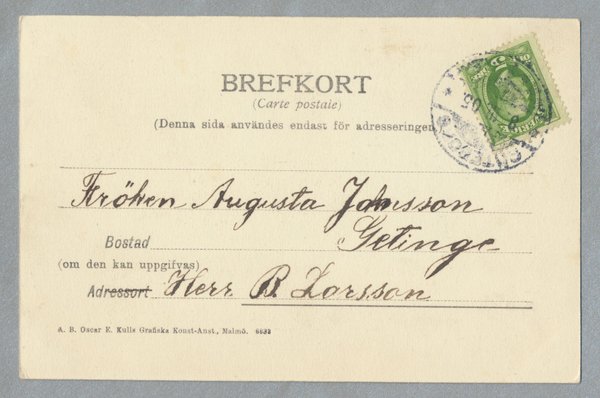 BREFKORT
(Carte postale)
(Denna sida användes endast för adresseringen
Fröken Augusta Johnsson
Bostad Getinge
(om den kan uppgifvas)
Adressort Herr B. Larsson
A. B. Oscar E. Kulls Grafiska Konst-Anst., Malmö. 6933